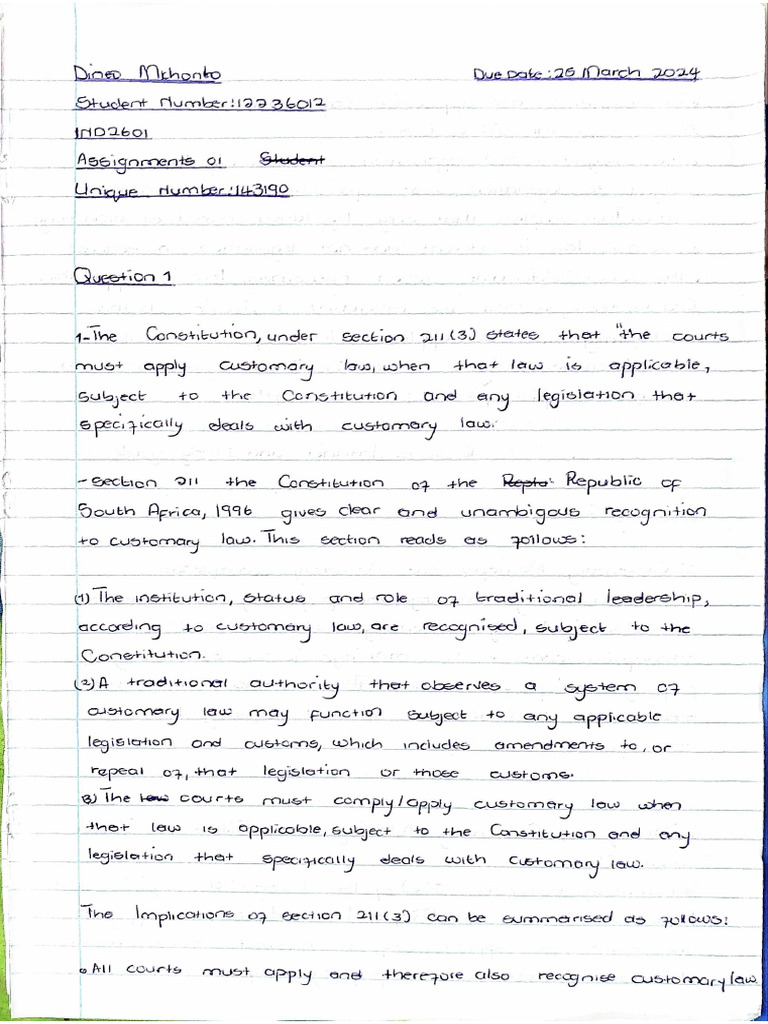 Dineo Mkhonto Due Date: 26 March 2024
Student Number: 12236012
IND2601
Assignments 01 Student
Unique Number: 143190
Question 1
1-The Constitution, under section 211(3) states that "the courts
must apply customary law, when that law is applicable,
subject to the Constitution and any legislation that
specifically deals with customary law.
- Section 211 the Constitution of the Repto Republic of
South Africa, 1996 gives clear and unambigous recognition
to customary law. This section reads as follows:
(1) The institution, status and role of traditional leadership,
according to customary law, are recognised, subject to the
Constitution.
(2) A traditional authority that observes a system of
customary law may function subject to any applicable
legislation and customs, which includes amendments to, or
repeal of, that legislation or those customs.
(3) The law courts must comply/apply customary law when
that law is applicable, subject to the Constitution and any
legislation that specifically deals with customary law.
The Implications of section 211(3) can be summarised as follows:
• All courts must apply and therefore also recognise customary law